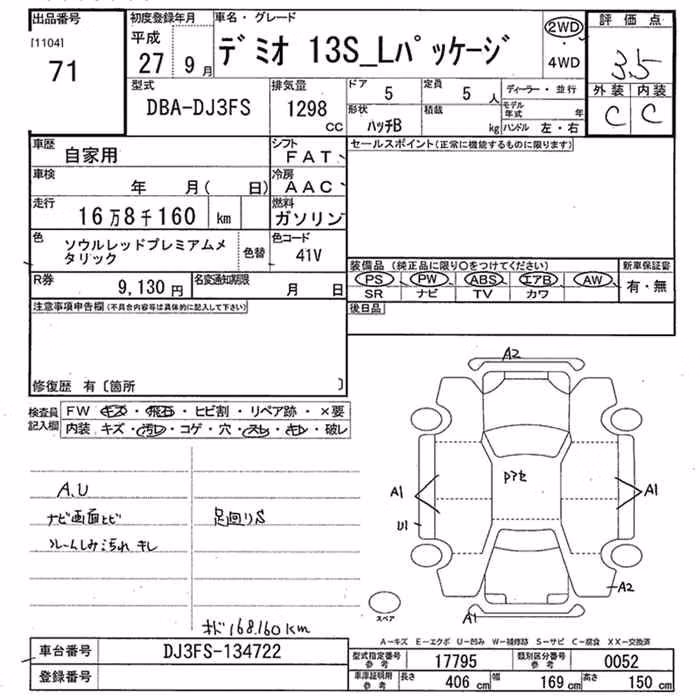 出品番号
[1104]
71
初度登録年月
平成
27年 9月
車名・グレード
デミオ 13S_Lパッケージ
2WD
・
4WD
評価点
3.5
外装 内装
C C
型式
DBA-DJ3FS
排気量
1298
CC
ドア
5
定員
5人
形状
ハッチB
積載
kg
ディーラー・並行
モデル年式 年
ハンドル 左・右
車歴
自家用
シフト
FAT
車検
年 月( 日)
冷房
AAC
走行
16万8千160 km
燃料
ガソリン
色
ソウルレッドプレミアムメ
タリック
色替
色コード
41V
R券
9,130円
名変通知期限
月 日
セールスポイント(正常に機能するものに限ります)
装備品 (純正品に限り〇をつけてください)
PS PW ABS エアB AW
SR ナビ TV カワ
新車保証書
有・無
後日品
注意事項申告欄(不具合内容等は具体的に記入して下さい)
修復歴 有〔箇所 〕
検査員
記入欄
FW キズ・飛石・ヒビ割・リペア跡・×要
内装 キズ・汚レ・コゲ・穴・スレ・キレ・破レ
A.U
ナビ画面トビ
足回りS
シートしみ汚れ キレ
168.160km
A2
A1
U1
Pアセ
A1
A2
A1
スペア
A−キズ E−エクボ U−凹み W−補修跡 S−サビ C−腐食 XX−交換済
車台番号
DJ3FS-134722
登録番号
型式指定番号
参考
17795
類別区分番号
参考
0052
車庫証明用
参考
長さ 406 cm 幅 169 cm 高さ 150 cm